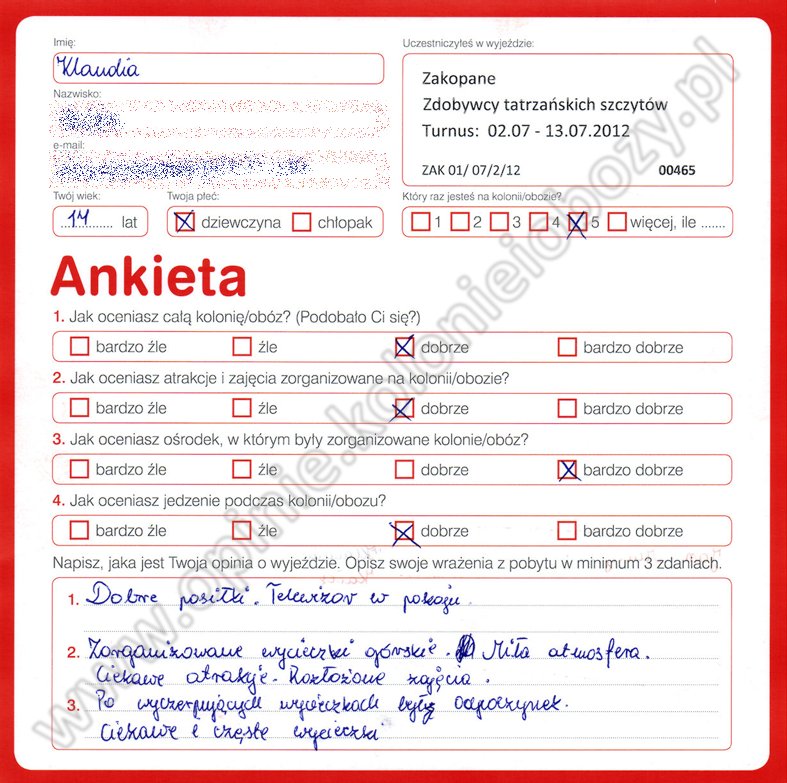 Imię:
Klaudia
Nazwisko:
e-mail:
Twój wiek:
14 lat
Twoja płeć:
dziewczyna chłopak
Uczestniczyłeś w wyjeździe:
Zakopane
Zdobywcy tatrzańskich szczytów
Turnus: 02.07 - 13.07.2012
ZAK 01/ 07/2/12 00465
Który raz jesteś na kolonii/obozie?
1 2 3 4 5 więcej, ile .......
Ankieta
1. Jak oceniasz całą kolonię/obóz? (Podobało Ci się?)
bardzo źle źle dobrze bardzo dobrze
2. Jak oceniasz atrakcje i zajęcia zorganizowane na kolonii/obozie?
bardzo źle źle dobrze bardzo dobrze
3. Jak oceniasz ośrodek, w którym były zorganizowane kolonie/obóz?
bardzo źle źle dobrze bardzo dobrze
4. Jak oceniasz jedzenie podczas kolonii/obozu?
bardzo źle źle dobrze bardzo dobrze
Napisz, jaka jest Twoja opinia o wyjeździe. Opisz swoje wrażenia z pobytu w minimum 3 zdaniach.
1. Dobre posiłki. Telewizor w pokoju.
2. Zorganizowane wycieczki górskie. Miła atmosfera.
Ciekawe atrakcje. Rozłożone zajęcia.
3. Po wyczerpujących wycieczkach były odpoczynek.
Ciekawe i częste wycieczki
www.opinie.kolonieiobozy.pl